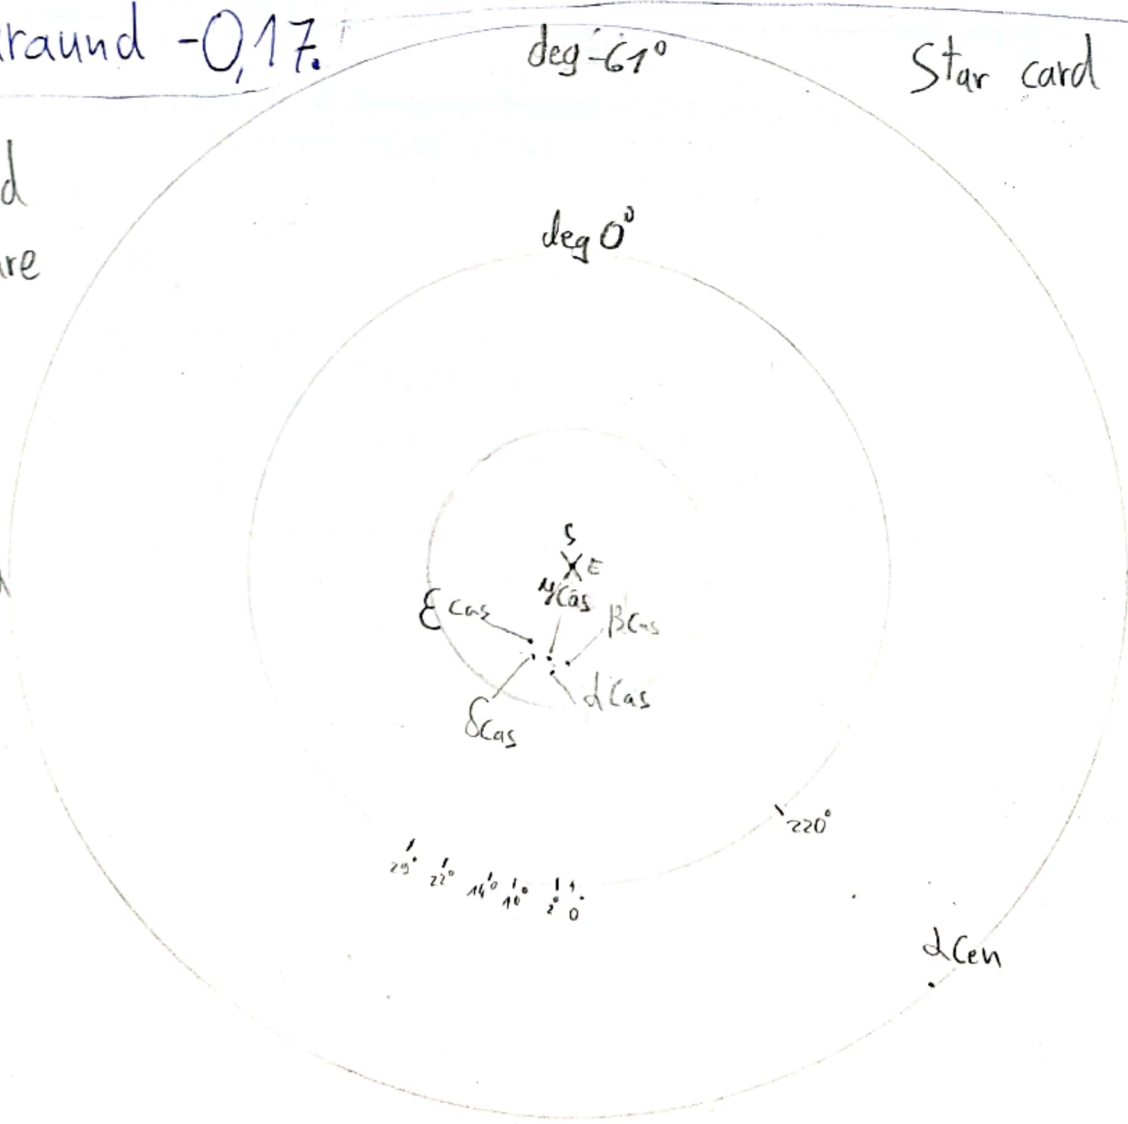 raund -0,17.
deg -61°
Star card
d
re
deg 0°
S
E
γ Cas
ε Cas
β Cas
α Cas
δ Cas
220°
29° 22° 14° 10° 2° 0
α Cen